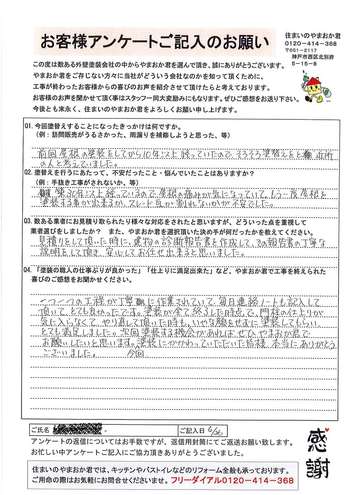 お客様アンケートご記入のお願い
住まいのやまおか君
0120-414-368
〒651-2117
神戸市西区北別府
5-15-8
この度は数ある外壁塗装会社の中からやまおか君を選んで頂き、誠にありがとうございます。
やまおか君をご存じない方々に当社がどういう会社なのかを知って頂くために、
工事が終わったお客様からの喜びのお声を紹介させて頂けたらと考えております。
お客様のお声を聞かせて頂く事はスタッフ一同大変励みにもなります。ぜひご意見をお送り下さい。
今後とも末永く、住まいのやまおか君をよろしくお願い申し上げます。
Q1.今回塗替えすることになったきっかけは何ですか。
(例：訪問販売がうるさかった、雨漏りを補修しようと思った、等)
前回屋根の塗装をしてから10年以上経っていたので、そろそろ塗替えをと
思っていました。
Q2.塗替えを行うにあたって、不安だったこと・悩んでいたことはありますか？
(例：手抜き工事がされないか、等)
年以上経っているので、屋根の痛みが気になっていて、もう一度屋根を
塗装する事が出来るか、スレート瓦が割れないかが不安でした。
Q3.数ある業者にお見積り取られたり様々な対応をされたと思いますが、どういった点を重視して
業者選びをしましたか？ また、やまおか君を選択頂いた決め手が何だったかを教えてください。
見積りをして頂いた時に、建物の診断報告書を作成して、その報告書の丁寧な
説明をして頂き、安心してお任せ出来ると思いました。
Q4.「塗装の職人の仕事ぶりが良かった」「仕上りに満足出来た」など、やまおか君で工事を終えられた
喜びのご感想をお聞かせください。
一つ一つの工程が丁寧に作業されていて、毎日連絡ノートも記入して
頂いて、とても良かったです。塗装が全て終了した時点で、門柱の仕上りが
気に入らなくて、やり直して頂いた時も、いやな顔をせずに塗装してもらい、
とても満足しました。今回塗装する機会があれば、ぜひやまおか君で
お願いしたいと思います。塗装にかかわっていただいた皆様、本当にありがとう
ございました。
ご氏名
様
ご記入日
アンケートの返信についてはお手数ですが、返信用封筒にてご返送お願い致します。
お忙しい中アンケートにご協力頂きありがとうございました。
感謝
住まいのやまおか君では、キッチンやバストイレなどのリフォーム全般も承っております。
ご用命の際はお気軽にお問合せくださいませ。フリーダイアル0120-414-368